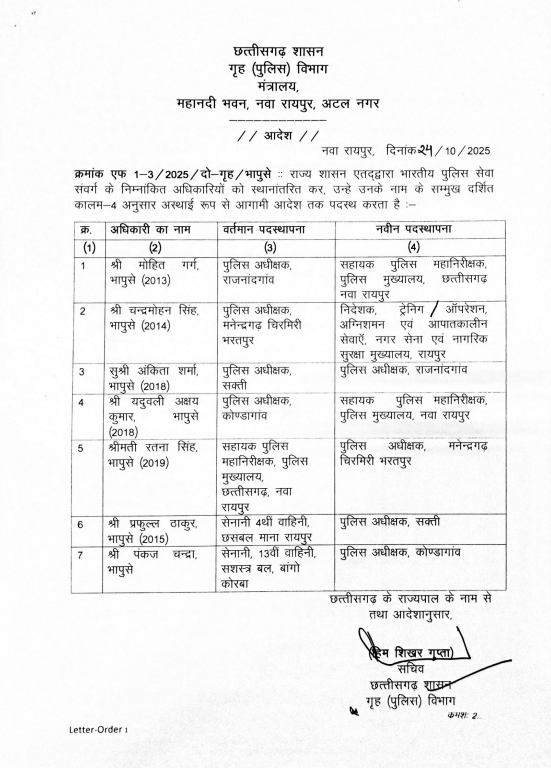 छत्तीसगढ़ शासन
गृह (पुलिस) विभाग
मंत्रालय,
महानदी भवन, नवा रायपुर, अटल नगर
-------------
// आदेश //
नवा रायपुर, दिनांक 24/10/2025
क्रमांक एफ 1-3/2025/दो-गृह/भापुसे :: राज्य शासन एतद्द्वारा भारतीय पुलिस सेवा
संवर्ग के निम्नांकित अधिकारियों को स्थानांतरित कर, उन्हे उनके नाम के सम्मुख दर्शित
कालम-4 अनुसार अस्थाई रूप से आगामी आदेश तक पदस्थ करता है :-
क्र. अधिकारी का नाम वर्तमान पदस्थापना नवीन पदस्थापना
(1) (2) (3) (4)
1 श्री मोहित गर्ग, पुलिस अधीक्षक, सहायक पुलिस महानिरीक्षक,
भापुसे (2013) राजनांदगांव पुलिस मुख्यालय, छत्तीसगढ़
नवा रायपुर
2 श्री चन्द्रमोहन सिंह, पुलिस अधीक्षक, निदेशक, ट्रेनिग / ऑपरेशन,
भापुसे (2014) मनेन्द्रगढ़ चिरमिरी अग्निशमन एवं आपातकालीन
भरतपुर सेवाऍ, नगर सेना एवं नागरिक
सुरक्षा मुख्यालय, रायपुर
3 सुश्री अंकिता शर्मा, पुलिस अधीक्षक, पुलिस अधीक्षक, राजनांदगांव
भापुसे (2018) सक्ती
4 श्री यदुवली अक्षय पुलिस अधीक्षक, सहायक पुलिस महानिरीक्षक,
कुमार, भापुसे कोण्डागांव पुलिस मुख्यालय, नवा रायपुर
(2018)
5 श्रीमती रतना सिंह, सहायक पुलिस पुलिस अधीक्षक, मनेन्द्रगढ़
भापुसे (2019) महानिरीक्षक, पुलिस चिरमिरी भरतपुर
मुख्यालय,
छत्तीसगढ़, नवा
रायपुर
6 श्री प्रफुल्ल ठाकुर, सेनानी 4थीं वाहिनी, पुलिस अधीक्षक, सक्ती
भापुसे (2015) छसबल माना रायपुर
7 श्री पंकज चन्द्रा, सेनानी, 13वीं वाहिनी, पुलिस अधीक्षक, कोण्डागांव
भापुसे सशस्त्र बल, बांगो
कोरबा
छत्तीसगढ़ के राज्यपाल के नाम से
तथा आदेशानुसार,
(हिम शिखर गुप्ता)
सचिव
छत्तीसगढ़ शासन
गृह (पुलिस) विभाग
क्रमशः 2..
Letter-Order 1